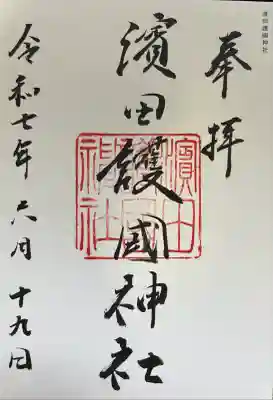 濵田護國神社
奉拝
濵田護國神社
令和七年六月十九日
濱田護國神社